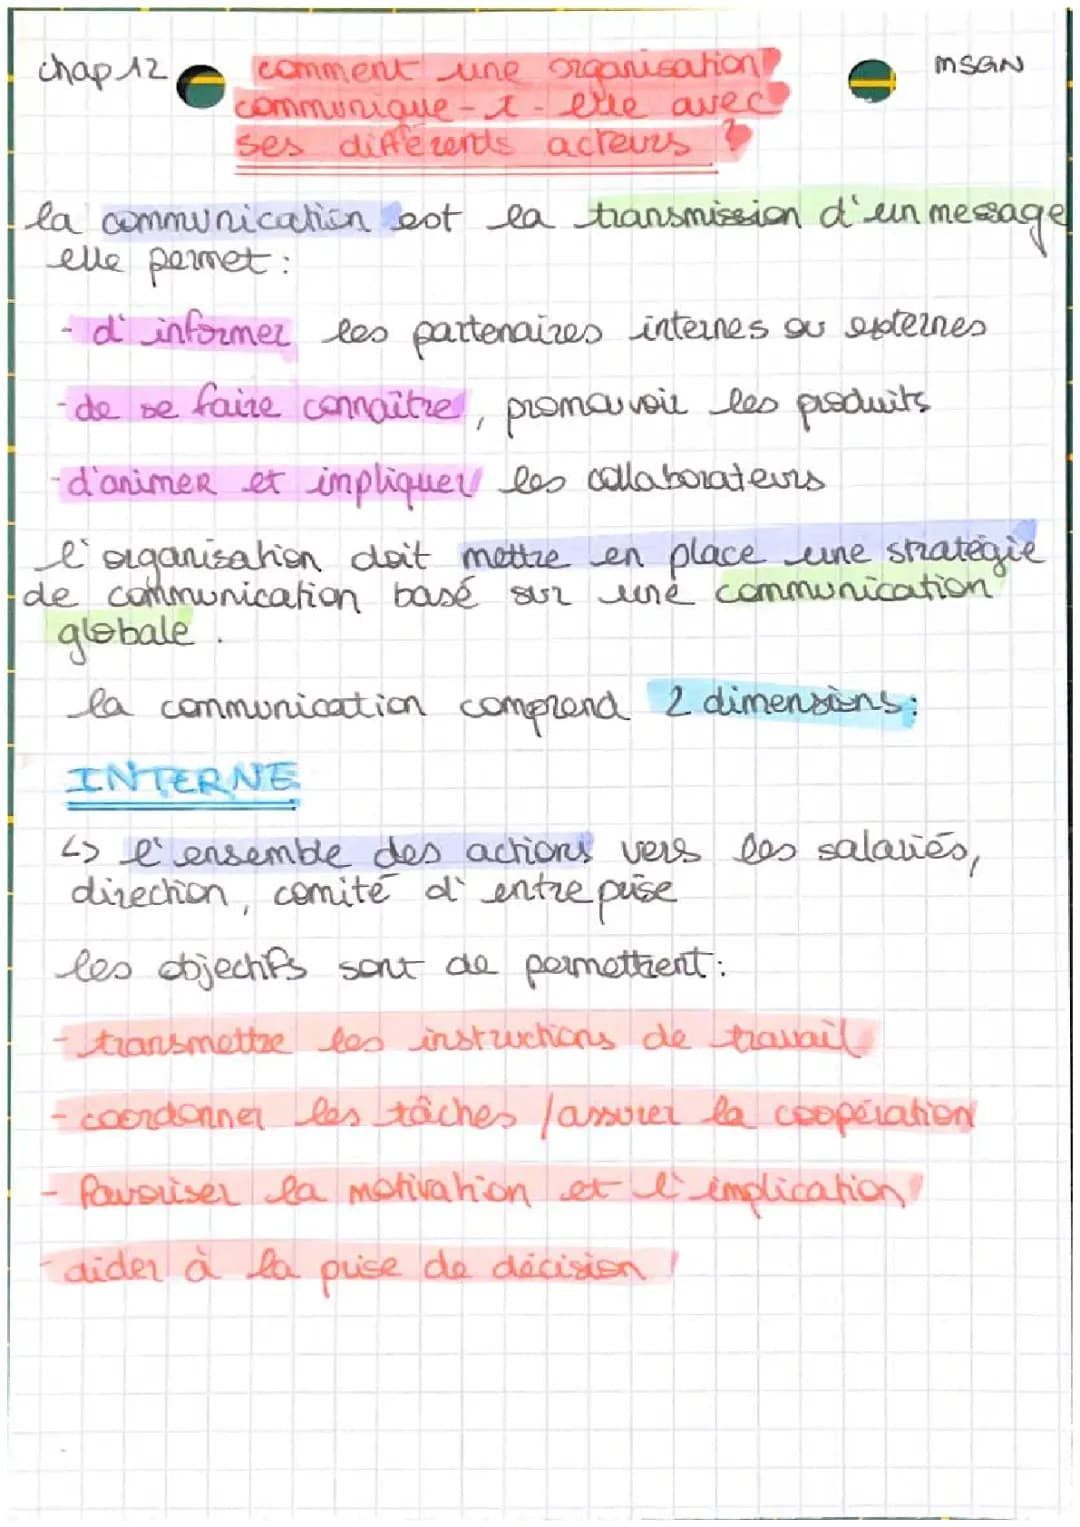 chap 12
MSGN
comment une organisation
communique-t-elle avec
ses différents acteurs ?
la communication est la transmission d'un message
elle permet :
- d'informer les partenaires internes ou externes
- de se faire connaître, promouvoir les produits
- d'animer et impliquer les collaborateurs
l'organisation doit mettre en place une stratégie
de communication basé sur une communication
globale.
la communication comprend 2 dimensions :
INTERNE
↳ l'ensemble des actions vers les salariés,
direction, comité d'entreprise
les objectifs sont de permettrent :
- transmettre les instructions de travail
- coordonner les tâches / assurer la coopération
- favoriser la motivation et l'implication
- aider à la prise de décision